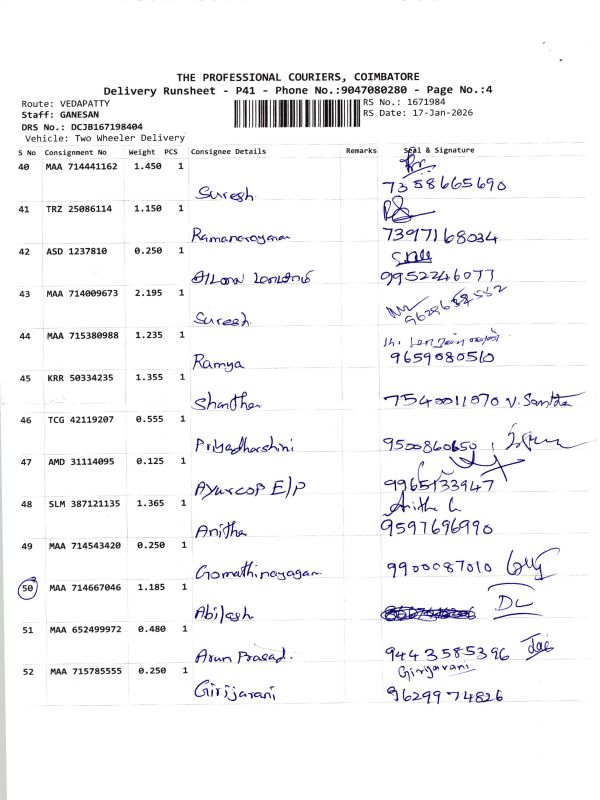 THE PROFESSIONAL COURIERS, COIMBATORE
Delivery Runsheet - P41 - Phone No.:9047080280 - Page No.:4
Route: VEDAPATTY
RS No.: 1671984
Staff: GANESAN
RS Date: 17-Jan-2026
DRS No.: DCJB167198404
Vehicle: Two Wheeler Delivery
S No Consignment No Weight PCS Consignee Details Remarks Seal & Signature
40 MAA 714441162 1.450 1
Suresh 7358665690
41 TRZ 25086114 1.150 1
Ramanarayanan 7397168034
42 ASD 1237810 0.250 1
9952246077
43 MAA 714009673 2.195 1
Suresh
44 MAA 715380988 1.235 1
Ramya 9659080510
45 KRR 50334235 1.355 1
Shantha 7540011070 V. Santha
46 TCG 42119207 0.555 1
Priyadharshini 9500860650
47 AMD 31114095 0.125 1
Ayurcop E/P 9965133947
48 SLM 387121135 1.365 1
Anitha
Anitha 9597696990
49 MAA 714543420 0.250 1
Gomathinayagan 9900087010
50 MAA 714667046 1.185 1
Abilash DL
51 MAA 652499972 0.480 1
Arun Prasad. 9443585396
52 MAA 715785555 0.250 1
Girijarani
Girijarani 9629974826